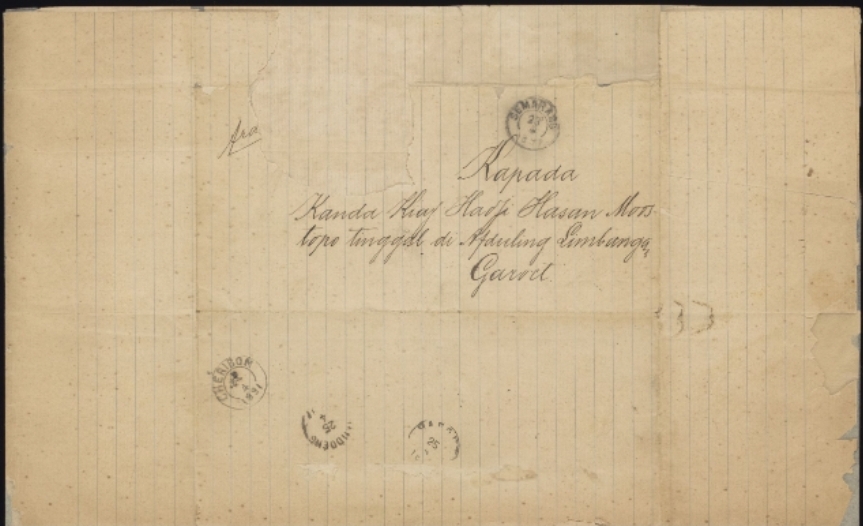 SEMARANG
Ara
Kapada
Kanda Kiaj Hadji Hasan Moos
topo tinggal di Afdeling Limbangan
Garoet
CHERIBON
1891
BANDOENG
25
25